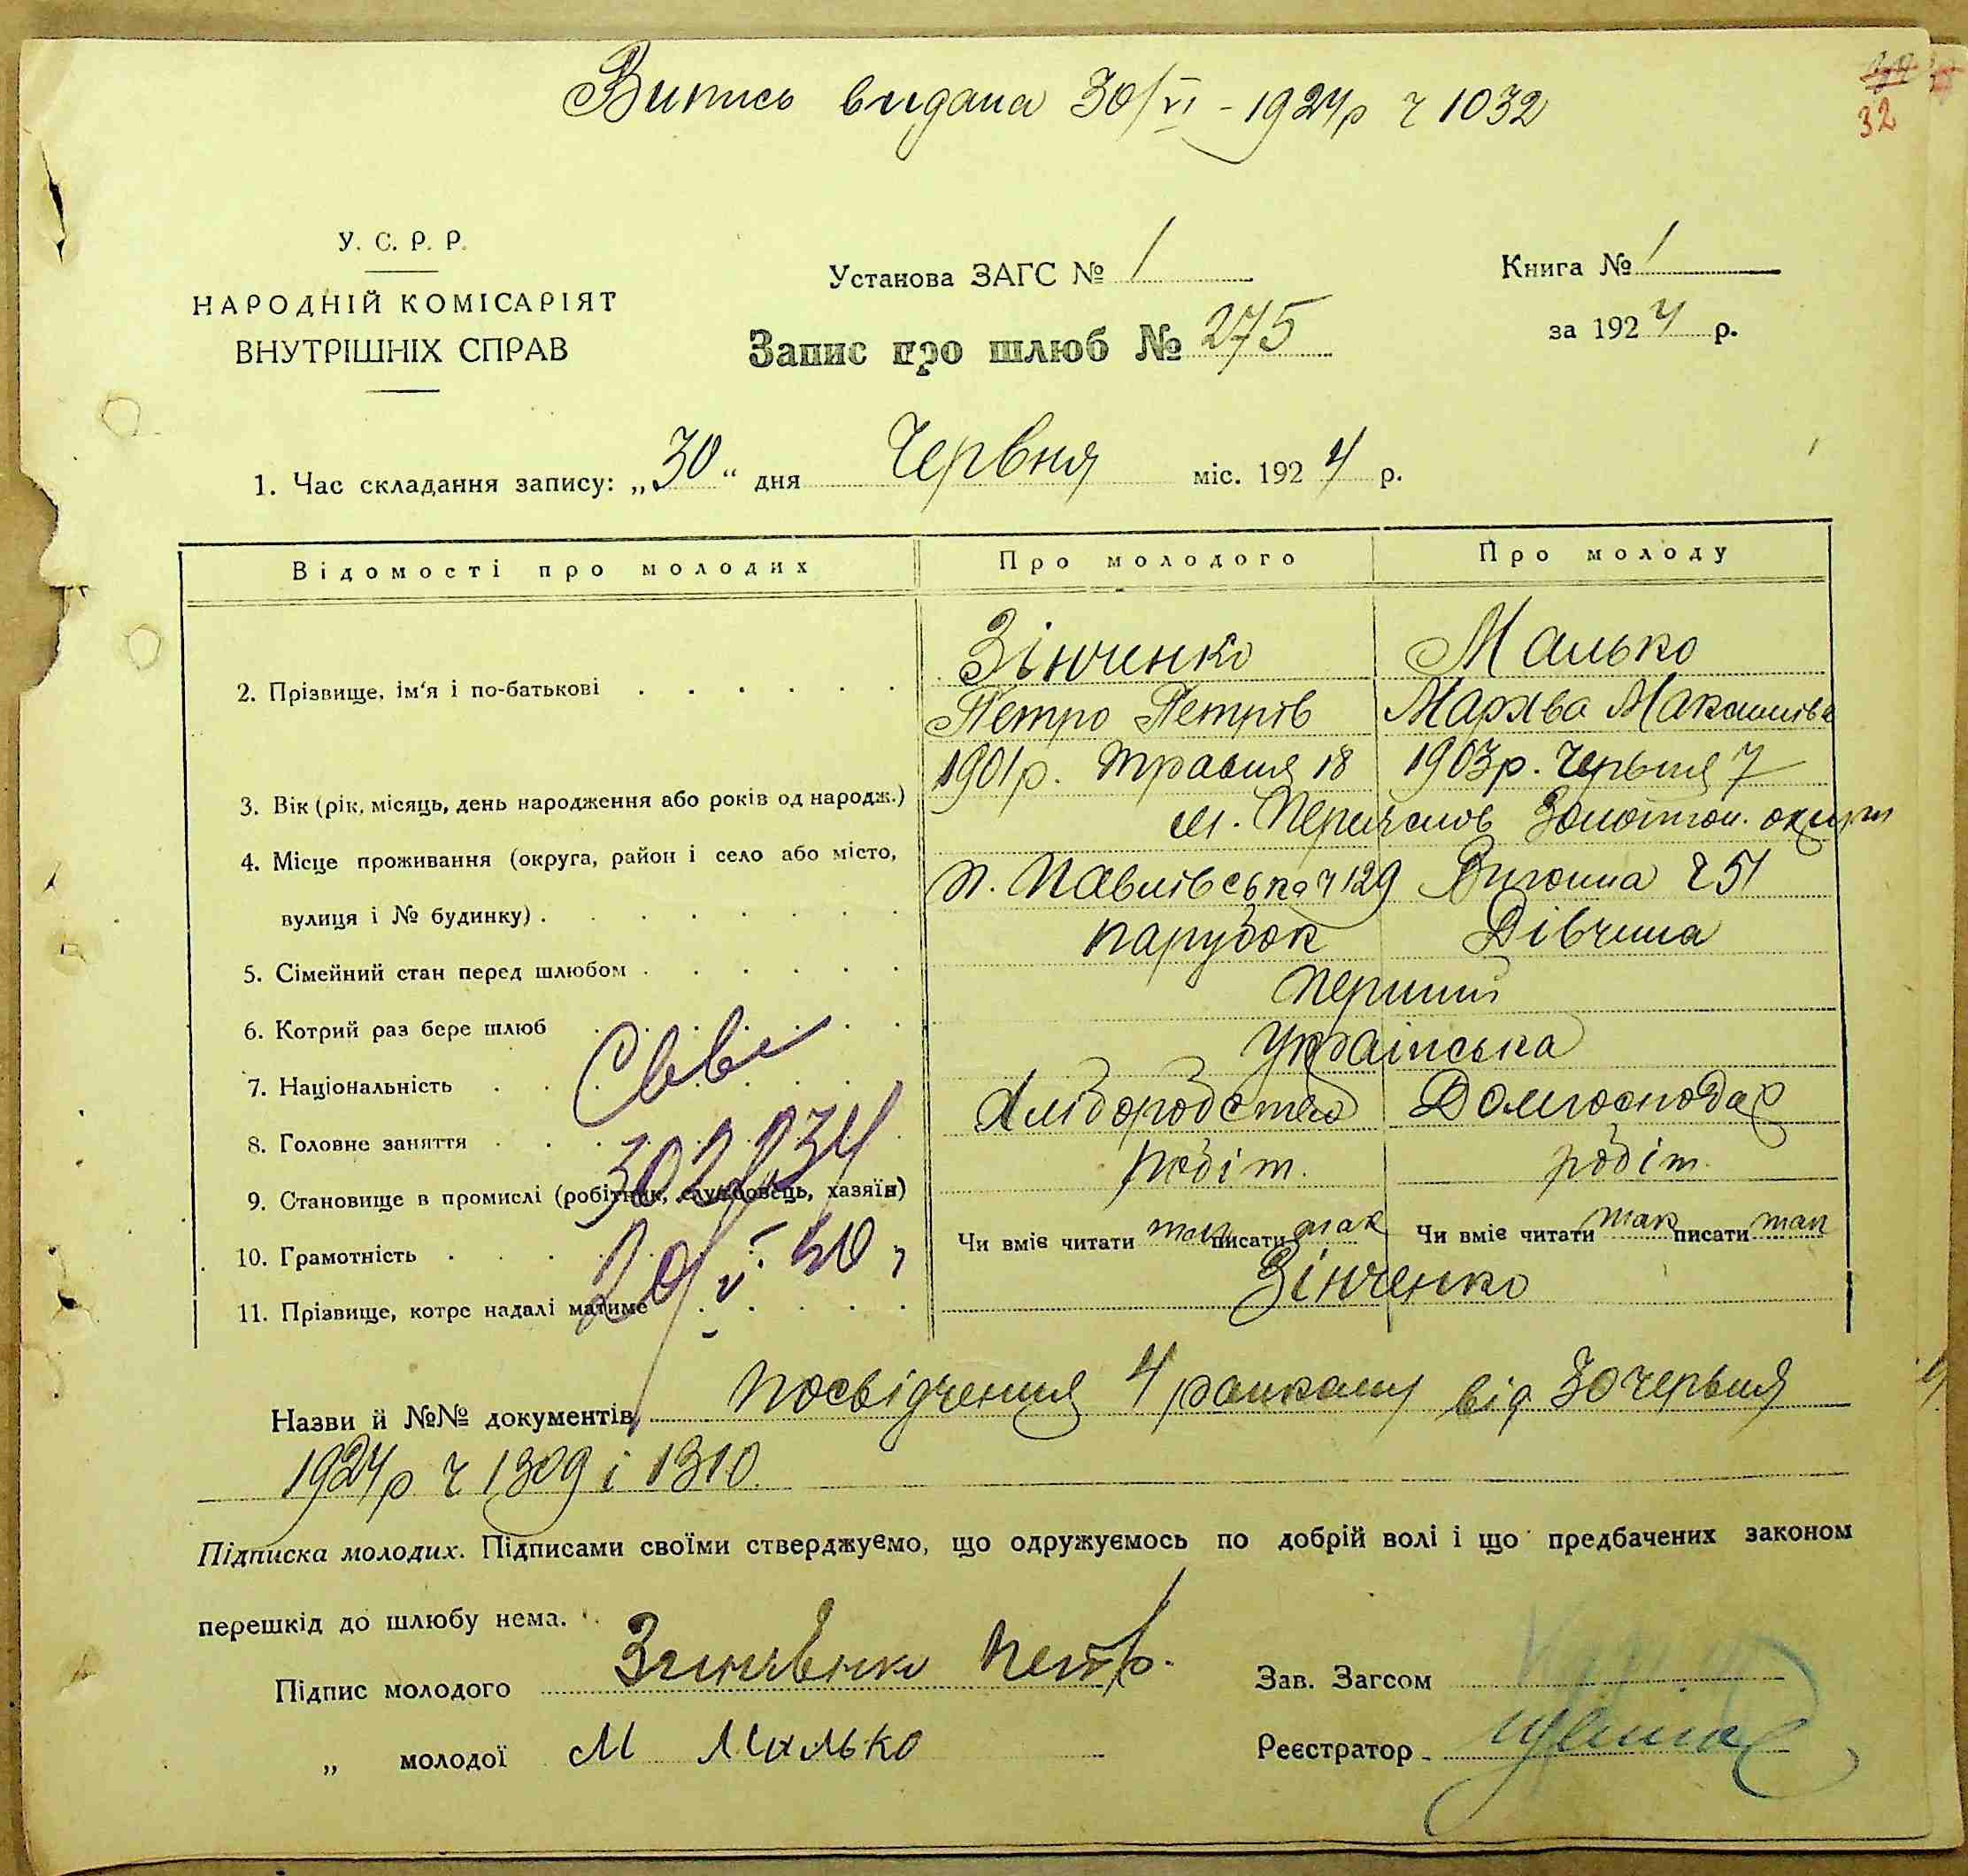 Випись видана 30/VI – 1924р ч 1032
32
У. С. Р. Р.
НАРОДНІЙ КОМІСАРІЯТ
ВНУТРІШНІХ СПРАВ
Установа ЗАГС № 1
Книга № 1
Запис про шлюб № 275
за 1924 р.
1. Час складання запису: „30“ дня Червня міс. 1924 р.
Відомості про молодих Про молодого Про молоду
Зінченко Малько
2. Прізвище, ім'я і по-батькові
Петро Петрів
1901р. Травня 18 1903р. Червня 7
3. Вік (рік, місяць, день народження або років од народж.)
м.
4. Місце проживання (округа, район і село або місто,
Павлівська ч 129 ч 51
вулиця і № будинку)
парубок Дівчина
5. Сімейний стан перед шлюбом
Перший
6. Котрий раз бере шлюб
Українська
7. Національність
Хліборобство Домгосподар
8. Головне заняття
робіт. робіт.
9. Становище в промислі (робітник, службовець, хазяїн)
10. Грамотність Чи вміє читати так писати так Чи вміє читати так писати так
Зінченко
11. Прізвище, котре надалі матиме
Назви й №№ документів Посвідчення 4 райкому від 30 червня
1924р ч 1309 і 1310.
Підписка молодих. Підписами своїми стверджуємо, що одружуємось по добрій волі і що предбачених законом
перешкід до шлюбу нема.
Підпис молодого
Зав. Загсом
„ молодої М Малько
Реєстратор